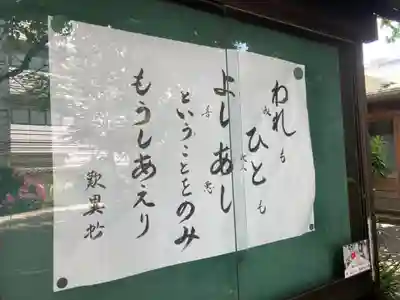 われも
ひとも
よしあし
善 悪
ということをのみ
もうしあえり
歎異抄